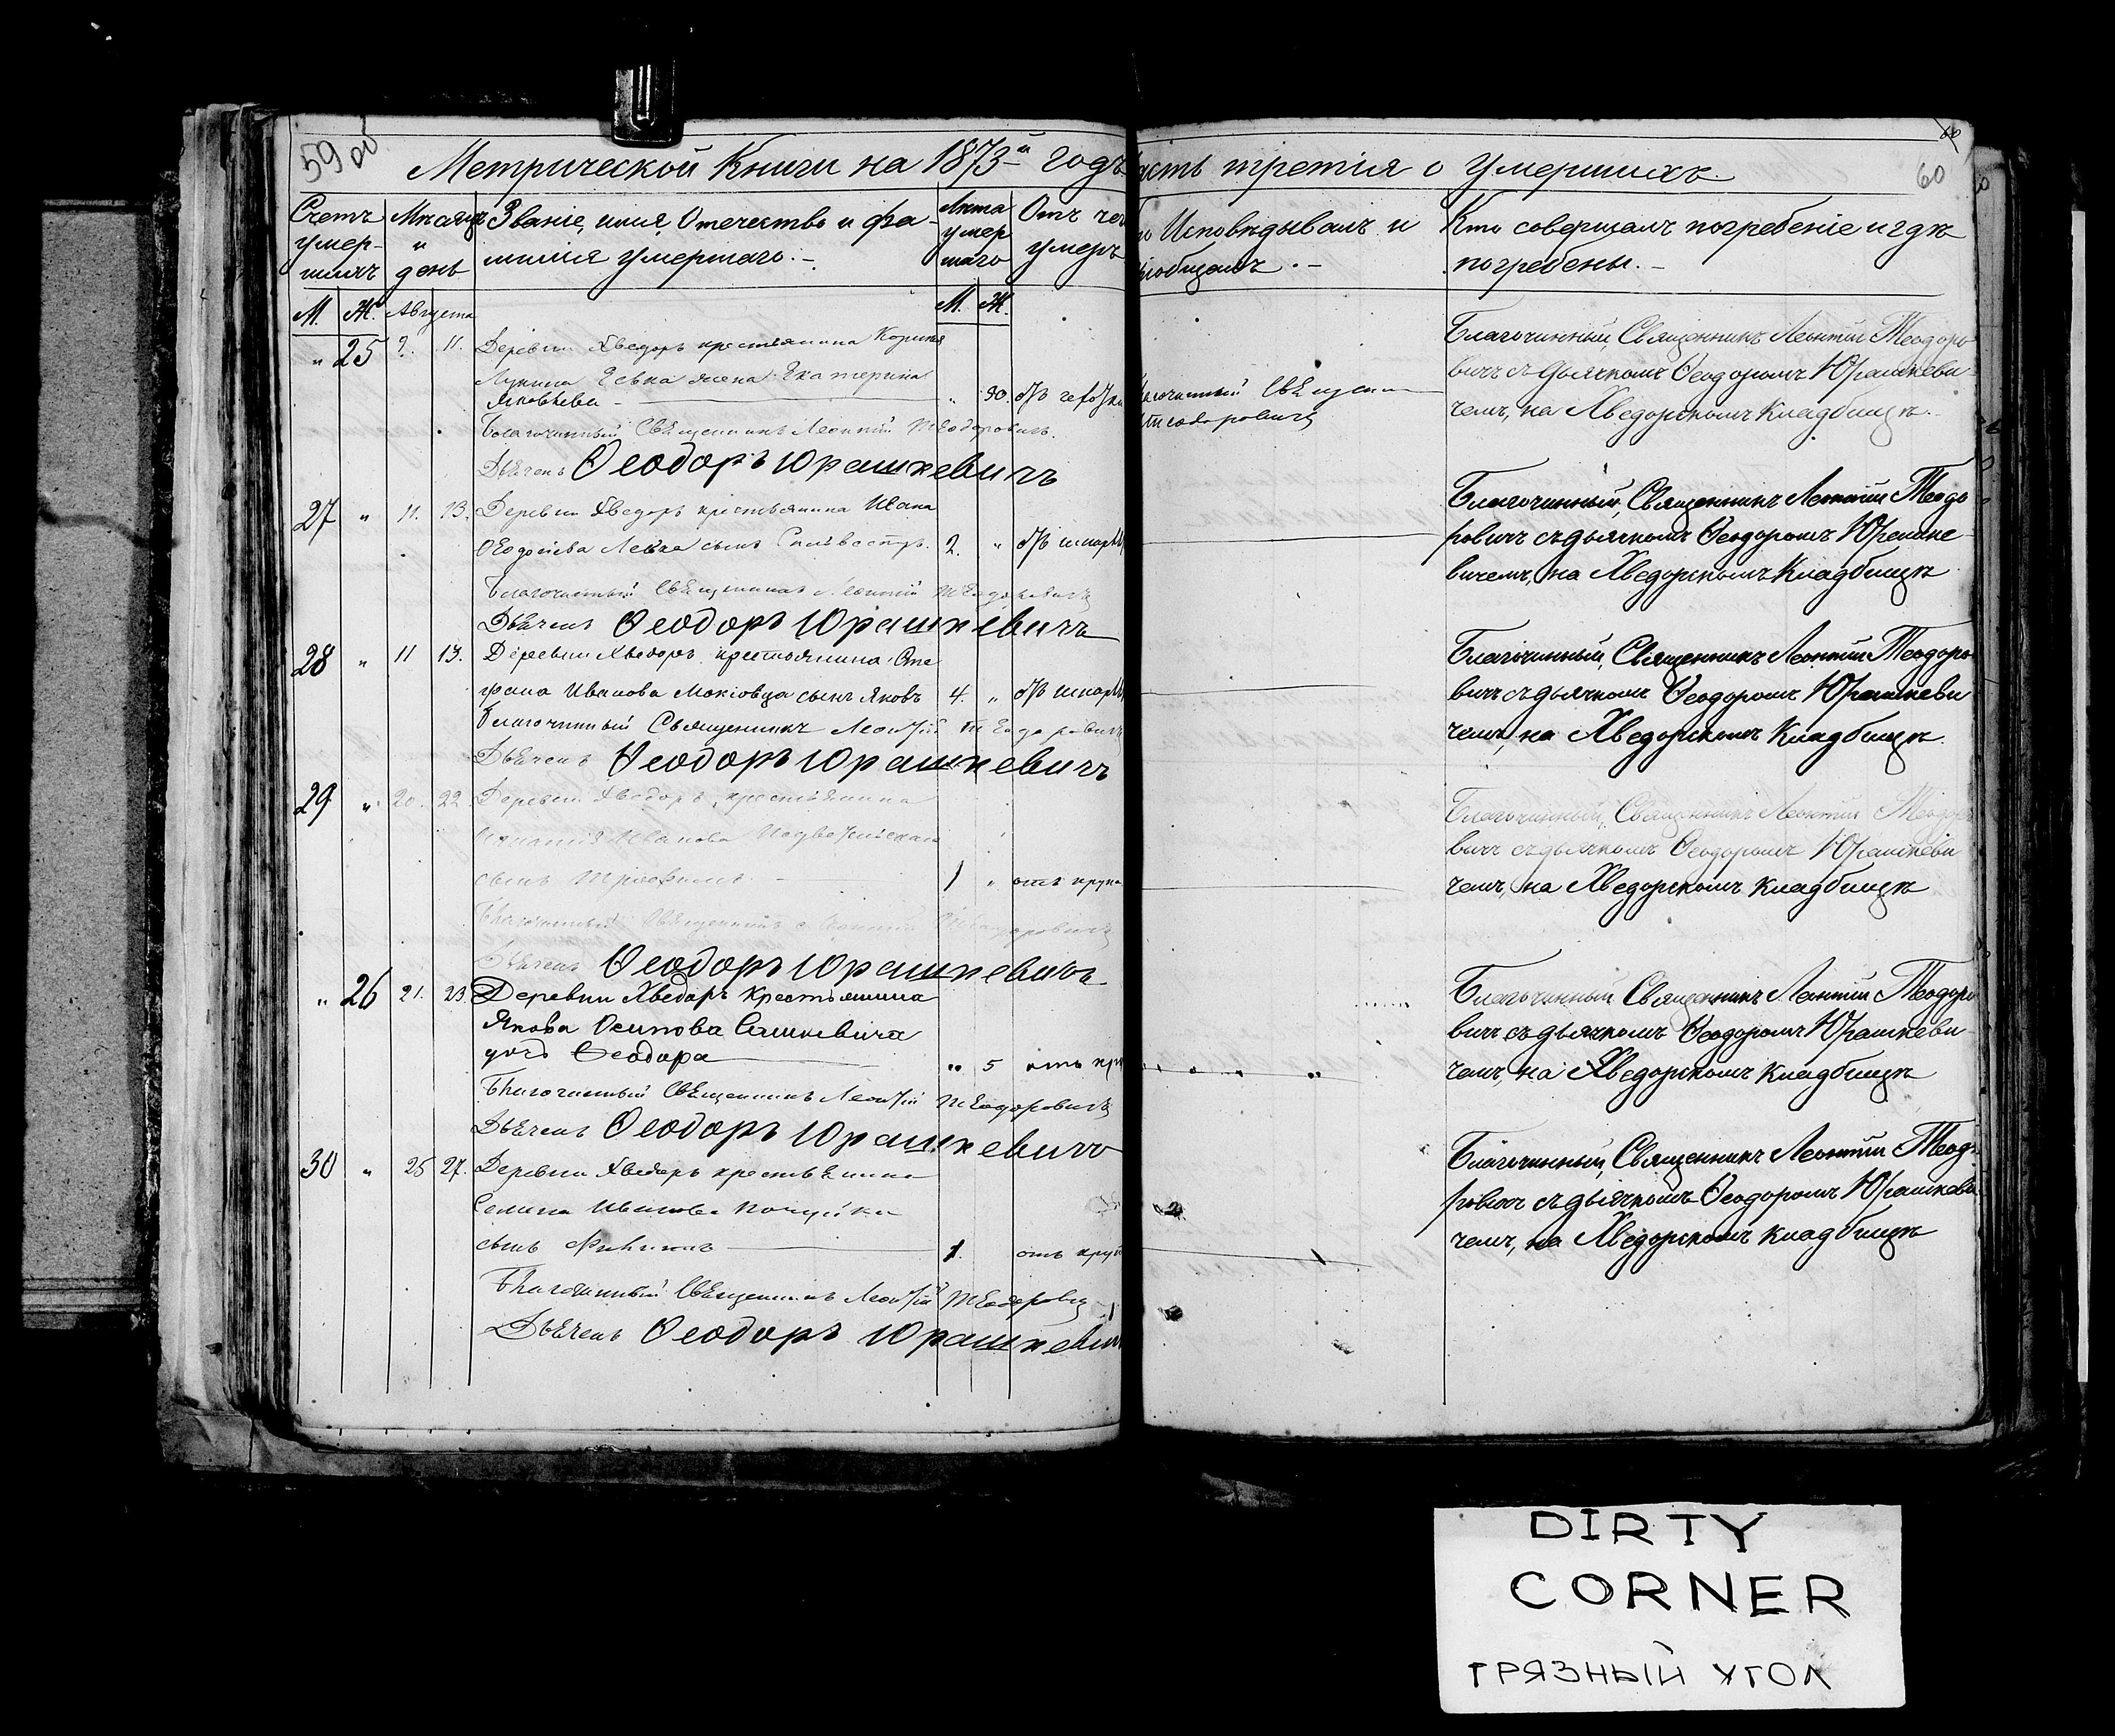 59 об
60
60
Метрической Книги на 1873-й годъ часть третія о Умершихъ.
Счетъ умер-шихъ
Мѣсяцъ и день
Званіе, имя, Отечество и фа-
милія умершаго.-
Лѣта умер шаго
Отъ чего умеръ
Исповѣдывалъ и
пріобщалъ.-
Кто совершалъ погребеніе и гдѣ
погребены.-
М. Ж. Августа М. Ж.
" 25 9. 11. Деревни Хведоръ крестьянина
жена Екатерина
Яковлева - " 30.
Благочинный Священникъ
Теодоровичъ
Благочинный Священникъ Леонтій Теодоровичъ.
Дьячекъ Ѳеодоръ Юрашкевичъ
Благочинный, Священникъ Леонтій Теодоро
вичъ съ дьячкомъ Ѳеодоромъ Юрашкеви
чемъ, на Хведорскомъ кладбищѣ.-
27 " 11. 13. Деревни Хведоръ крестьянина Ивана
сынъ 2. "
Благочинный Священникъ Леонтій Теодоровичъ
Дьячекъ Ѳеодоръ Юрашкевичъ
Благочинный, Священникъ Леонтій Теодо
ровичъ съ дьячкомъ Ѳеодоромъ Юрашке
вичемъ, на Хведорскомъ кладбищѣ
28 " 11 13. Деревни Хведоръ крестьянина Оне
фрія Иванова сынъ Яковъ 4. "
Благочинный Священникъ Леонтій Теодоровичъ
Дьячекъ Ѳеодоръ Юрашкевичъ
Благочинный, Священникъ Леонтій Теодоро
вичъ съ дьячкомъ Ѳеодоромъ Юрашкеви
чемъ, на Хведорскомъ кладбищѣ.
29 " 20. 22. Деревни Хведоръ, крестьянина
Иванова
сынъ 1 " отъ
Благочинный Священникъ Леонтій Теодоровичъ
Дьячекъ Ѳеодоръ Юрашкевичъ
Благочинный, Священникъ Леонтій Теодоро
вичъ съ дьячкомъ Ѳеодоромъ Юрашкеви
чемъ, на Хведорскомъ кладбищѣ
" 26 21. 23. Деревни Хведоръ крестьянина
Якова Осипова Сашкевича
дочь Ѳеодора " 5 отъ
Благочинный Священникъ Леонтій Теодоровичъ
Дьячекъ Ѳеодоръ Юрашкевичъ
Благочинный Священникъ Леонтій Теодоро
вичъ съ дьячкомъ Ѳеодоромъ Юрашкеви
чемъ, на Хведорскомъ кладбищѣ
30 " 25 27. Деревни Хведоръ крестьянина
Иванова
сынъ 1. отъ
Благочинный Священникъ Леонтій Теодорови
Дьячекъ Ѳеодоръ Юрашкевичъ
Благочинный, Священникъ Леонтій Теодо
ровичъ съ дьячкомъ Ѳеодоромъ Юрашкеви
чемъ, на Хведорскомъ кладбищѣ
DIRTY
CORNER
ГРЯЗНЫЙ УГОЛ